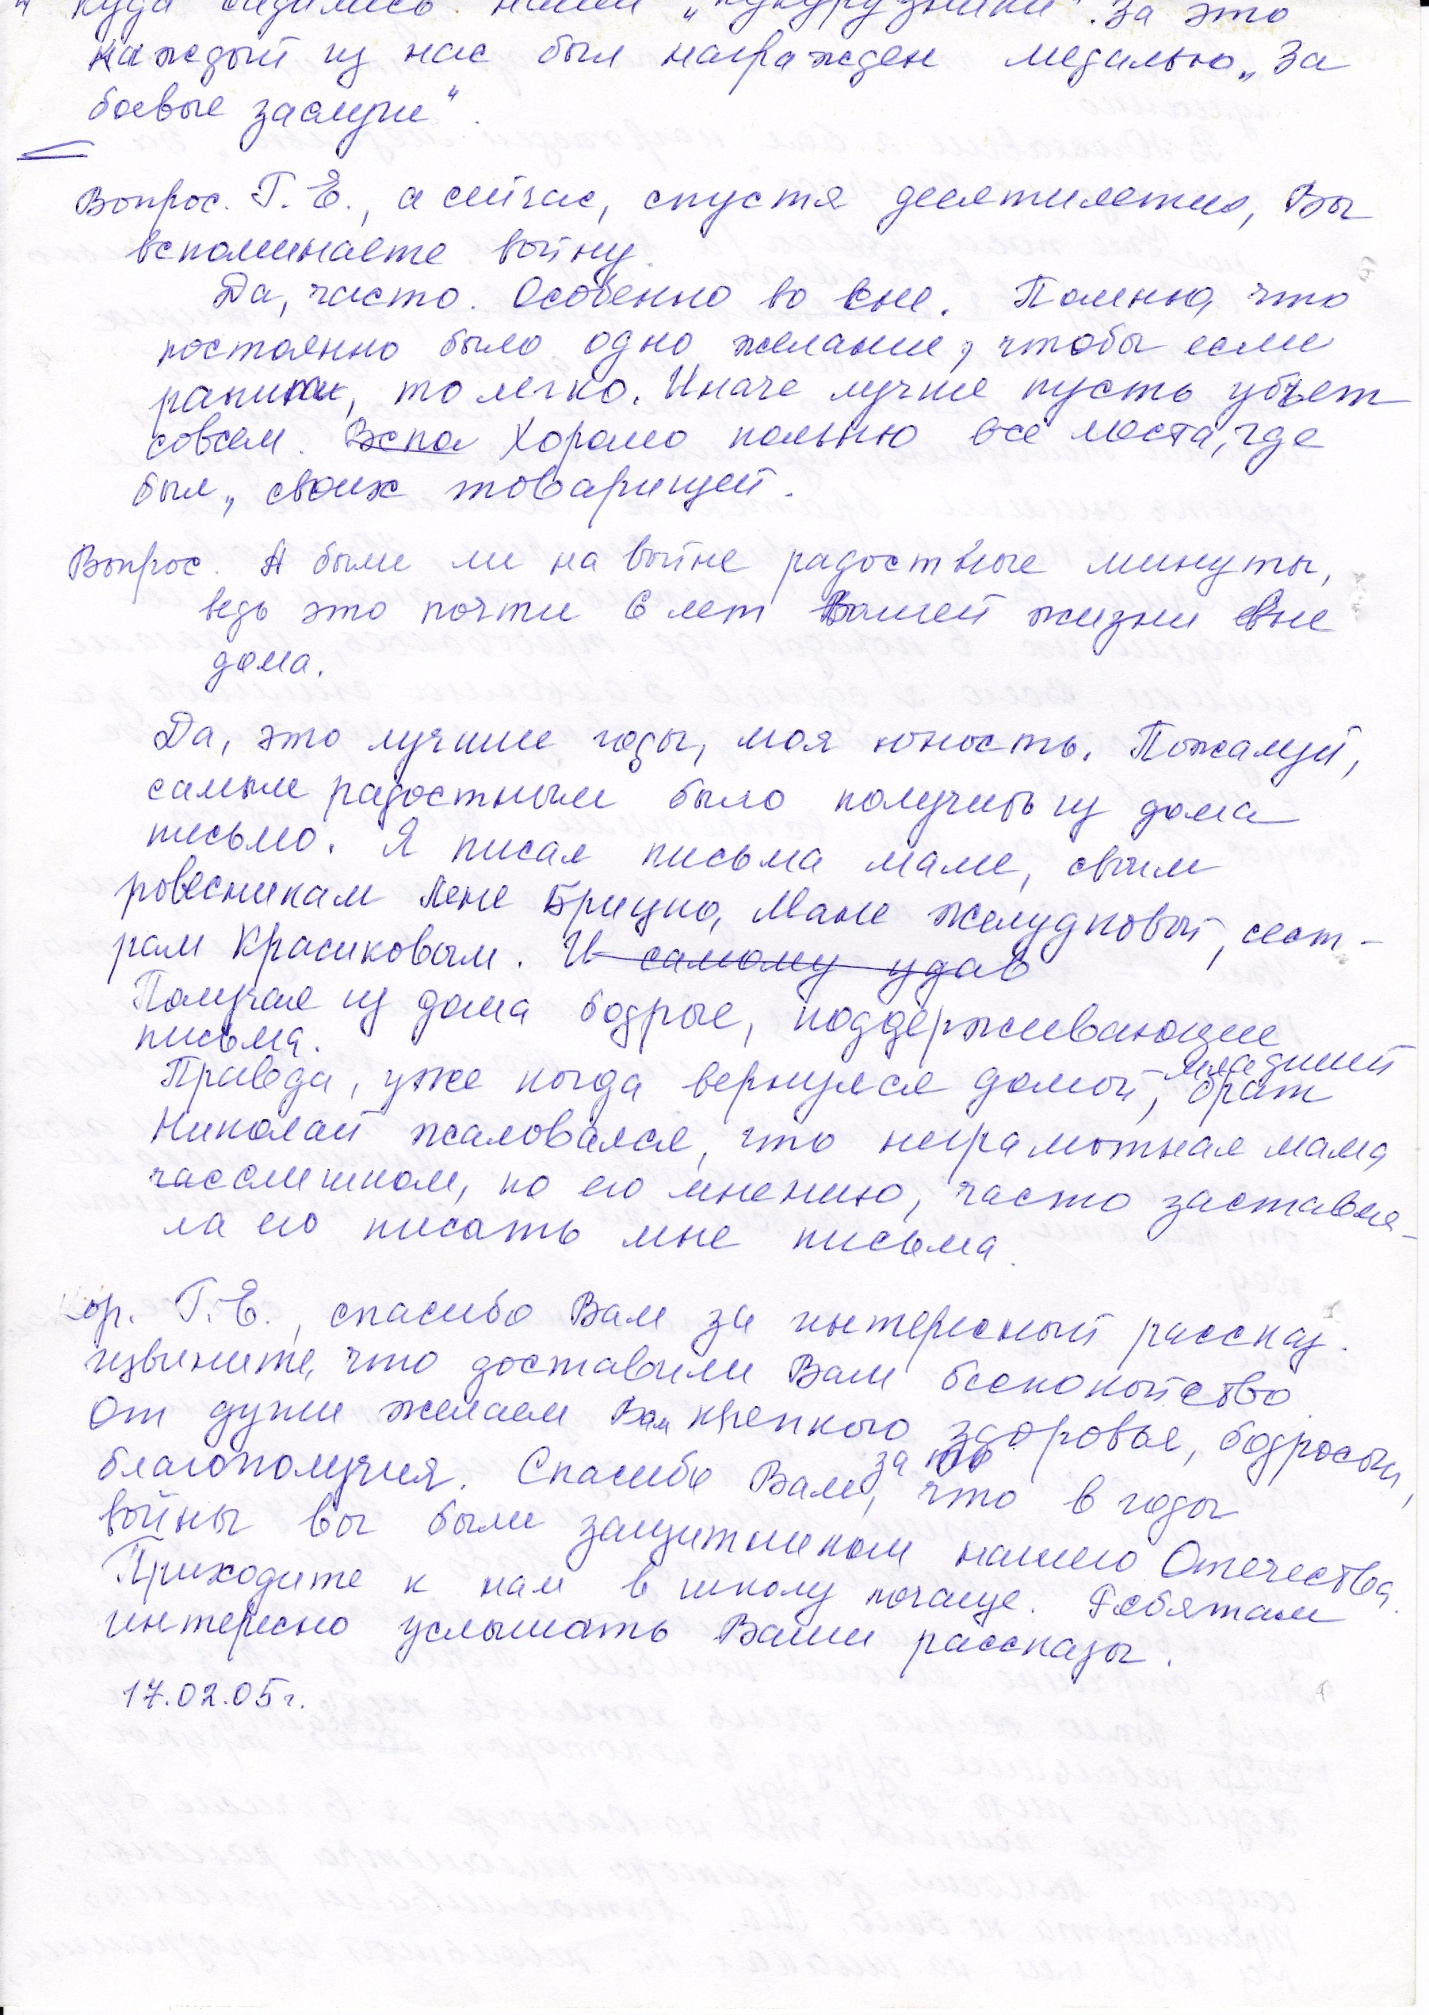 куда садились наши „кукурузники". За это
каждый из нас был награжден медалью „За
боевые заслуги".
Вопрос. Г. Е., а сейчас, спустя десятилетия, Вы
вспоминаете войну.
Да, часто. Особенно во сне. Помню, что
постоянно было одно желание, чтобы если
ранит, то легко. Иначе лучше пусть убьет
совсем. Вспо Хорошо помню все места, где
был, своих товарищей.
Вопрос. А были ли на войне радостные минуты,
ведь это почти 6 лет Вашей жизни вне
дома.
Да, это лучшие годы, моя юность. Пожалуй,
самым радостным было получить из дома
письмо. Я писал письма маме, своим
ровесникам Лене Брицко, Мане Желудковой, сест-
рам Красиковым. И самому удав
Получал из дома бодрые, поддерживающие
письма.
Правда, уже когда вернулся домой, младший брат
Николай жаловался, что неграмотная мама
слишком, по его мнению, часто заставля-
ла его писать мне письма.
Кор. Г. Е., спасибо Вам за интересный рассказ.
извините, что доставили Вам беспокойство.
От души желаем Вам крепкого здоровья, бодрости,
благополучия. Спасибо Вам за то, что в годы
войны вы были защитником нашего Отечества.
Приходите к нам в школу почаще. Ребятам
интересно услышать Ваши рассказы.
17.02.05г.